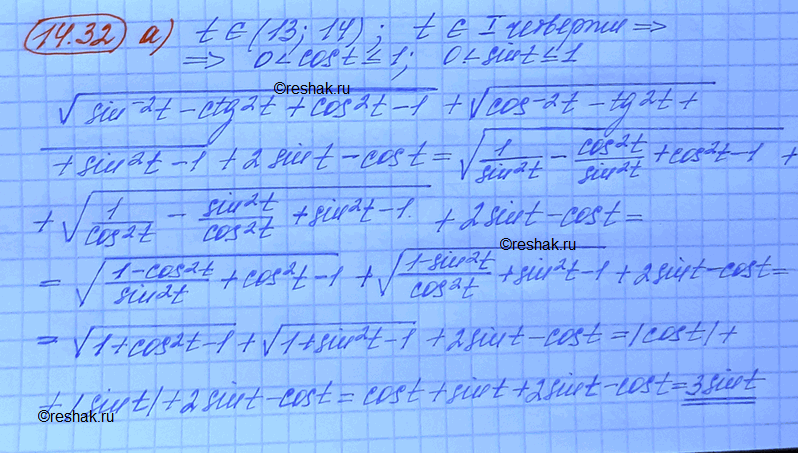 14.32 а) t ∈ (13; 14); t ∈ I четверти ⇒
⇒ 0 < cost ≤ 1; 0 < sint ≤ 1
©reshak.ru
√(sin⁻²t − ctg²t + cos²t − 1) + √(cos⁻²t − tg²t +
+ sin²t − 1) + 2sint − cost = √(1/sin²t − cos²t/sin²t + cos²t − 1) +
+ √(1/cos²t − sin²t/cos²t + sin²t − 1) + 2sint − cost =
©reshak.ru
= √((1−cos²t)/sin²t + cos²t − 1) + √((1−sin²t)/cos²t + sin²t − 1) + 2sint − cost =
= √(1 + cos²t − 1) + √(1 + sin²t − 1) + 2sint − cost = |cost| +
+ |sint| + 2sint − cost = cost + sint + 2sint − cost = 3sint
©reshak.ru